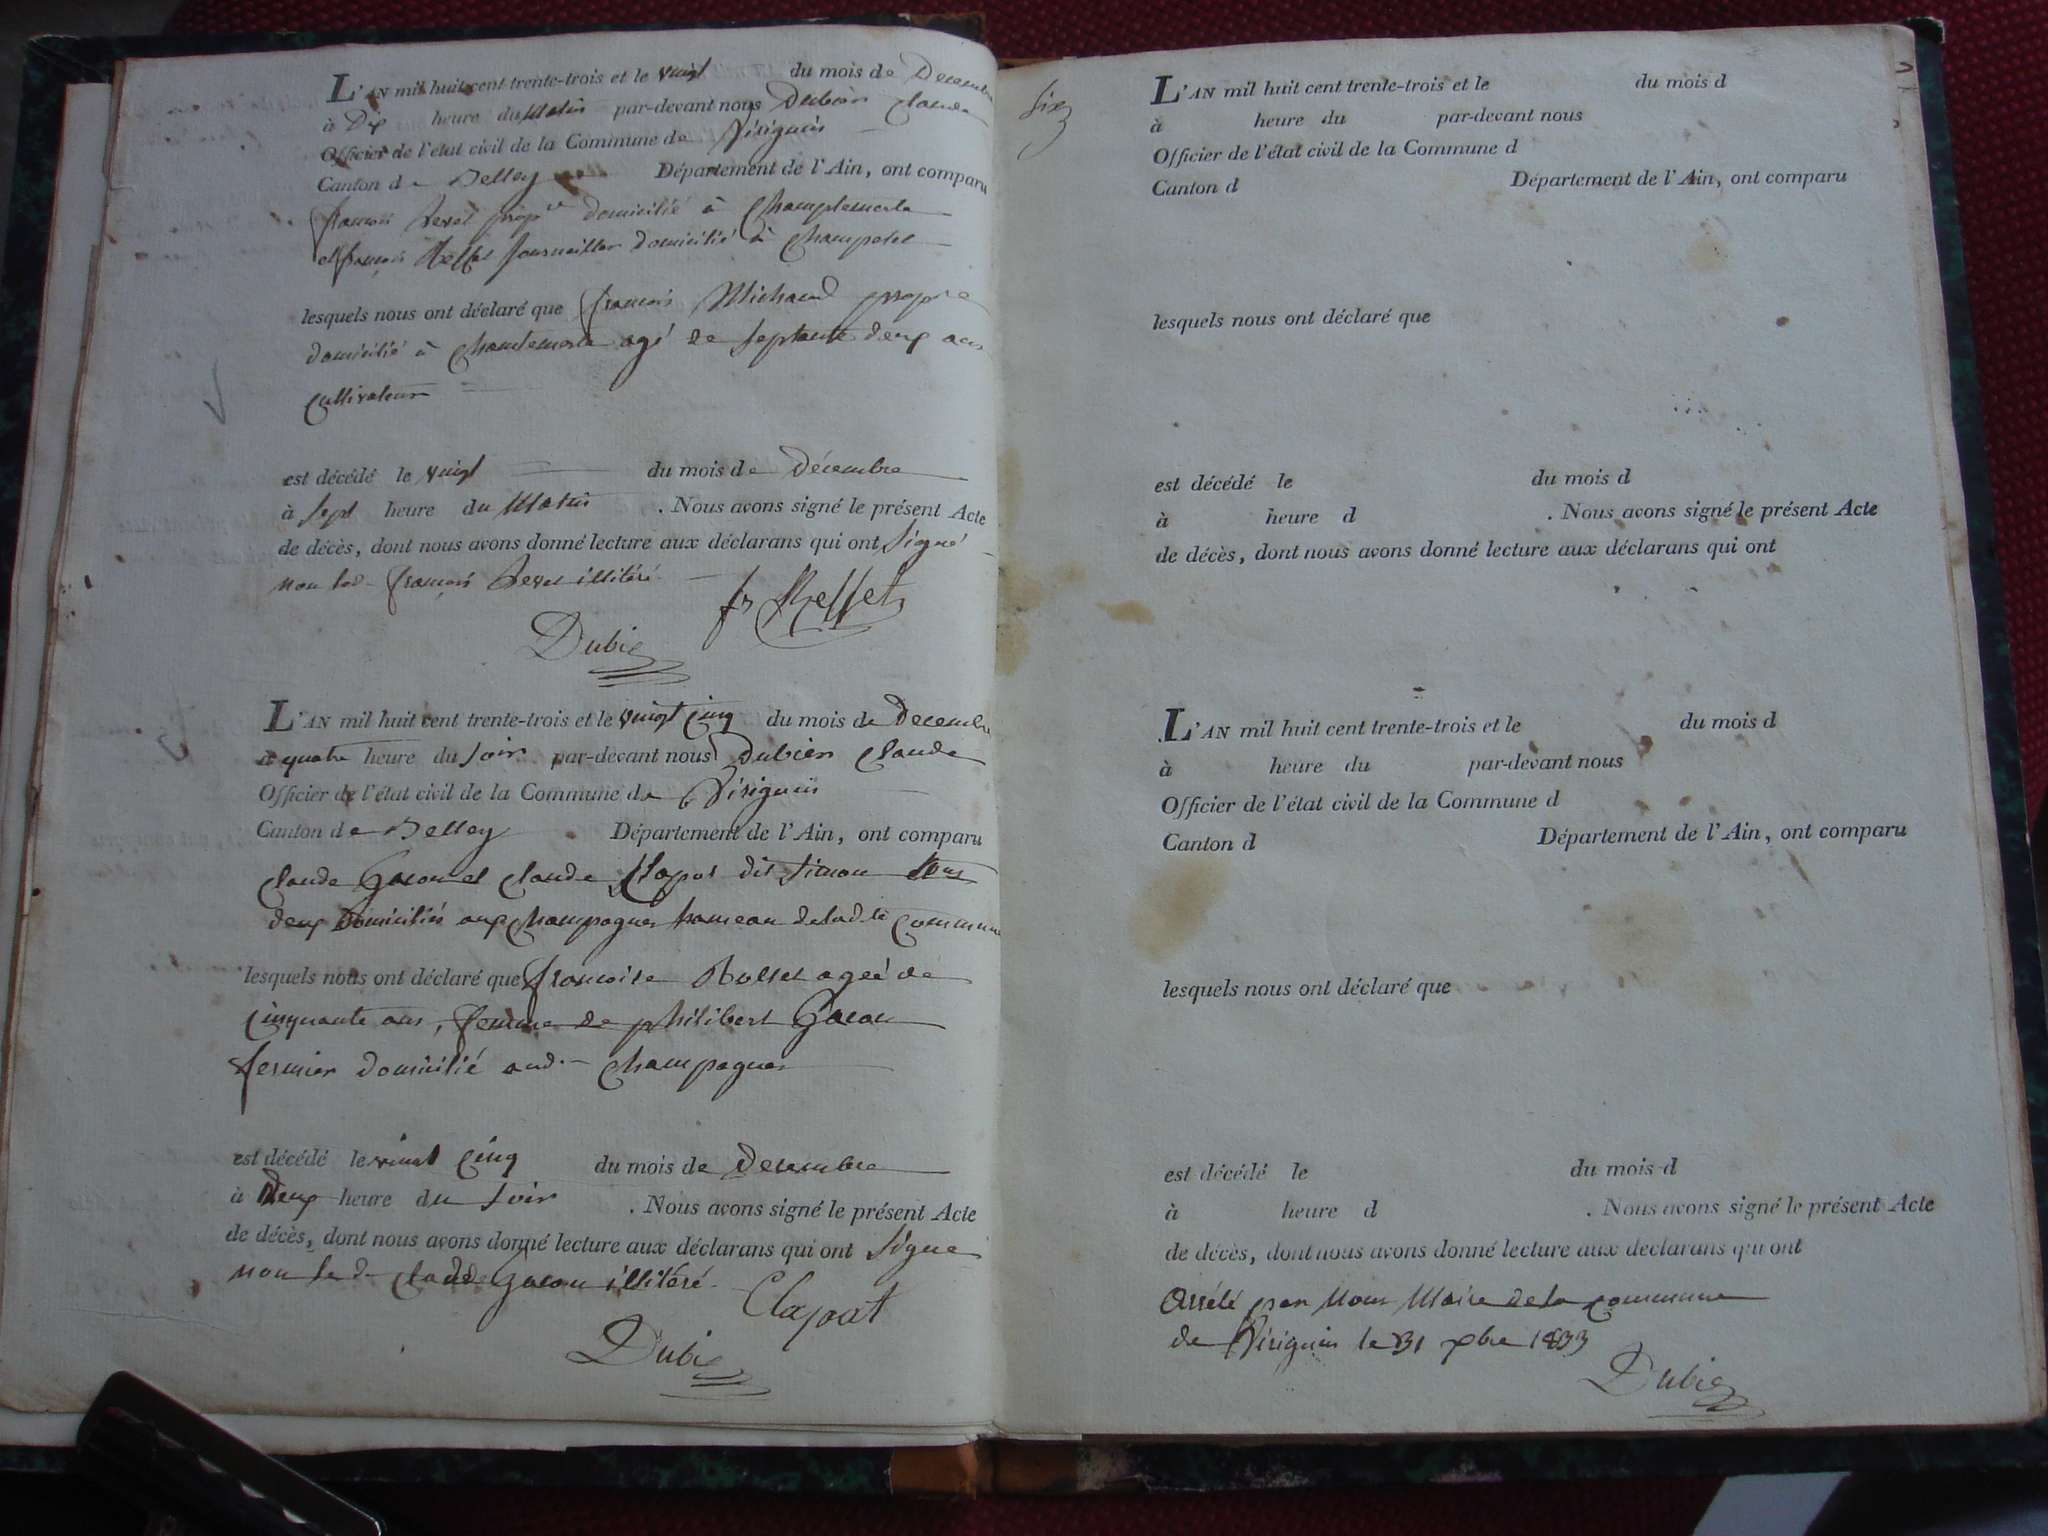 L'AN mil huit cent trente-trois et le vingt du mois de Decembre
à Dix heure du Matin par-devant nous Dubien Claude
Officier de l'état civil de la Commune de Virignin
Canton de Belley Département de l'Ain, ont comparu
françois domicilié à
et françois domicilié à
lesquels nous ont déclaré que françois Michaud
domicilié à agé de septante deux ans
Cultivateur
est décédé le vingt du mois de Décembre
à sept heure du Matin . Nous avons signé le présent Acte
de décès, dont nous avons donné lecture aux déclarans qui ont signé
non led. françois illitéré
Dubien
L'AN mil huit cent trente-trois et le vingt cinq du mois de Decembre
à quatre heure du soir par-devant nous Dubien Claude
Officier de l'état civil de la Commune de Virignin
Canton de Belley Département de l'Ain, ont comparu
Claude Gacon et Claude Clapot dit Simon tous
deux Domiciliés aux Champagnes hameau de lad.te Commune
lesquels nous ont déclaré que françoise agée de
Cinquante ans, femme de philibert Gacon
fermier domicilié aud. Champagnes
est décédé le vingt Cinq du mois de Decembre
à Deux heure du soir . Nous avons signé le présent Acte
de décès, dont nous avons donné lecture aux déclarans qui ont signé
non led. Claude Gacon illitéré. Clapat
Dubien
six
L'AN mil huit cent trente-trois et le du mois d
à heure du par-devant nous
Officier de l'état civil de la Commune d
Canton d Département de l'Ain, ont comparu
lesquels nous ont déclaré que
est décédé le du mois d
à heure d . Nous avons signé le présent Acte
de décès, dont nous avons donné lecture aux déclarans qui ont
L'AN mil huit cent trente-trois et le du mois d
à heure du par-devant nous
Officier de l'état civil de la Commune d
Canton d Département de l'Ain, ont comparu
lesquels nous ont déclaré que
est décédé le du mois d
à heure d . Nous avons signé le présent Acte
de décès, dont nous avons donné lecture aux déclarans qui ont
Arrêté par Nous Maire de la Commune
de Virignin le 31 xbre 1833
Dubien